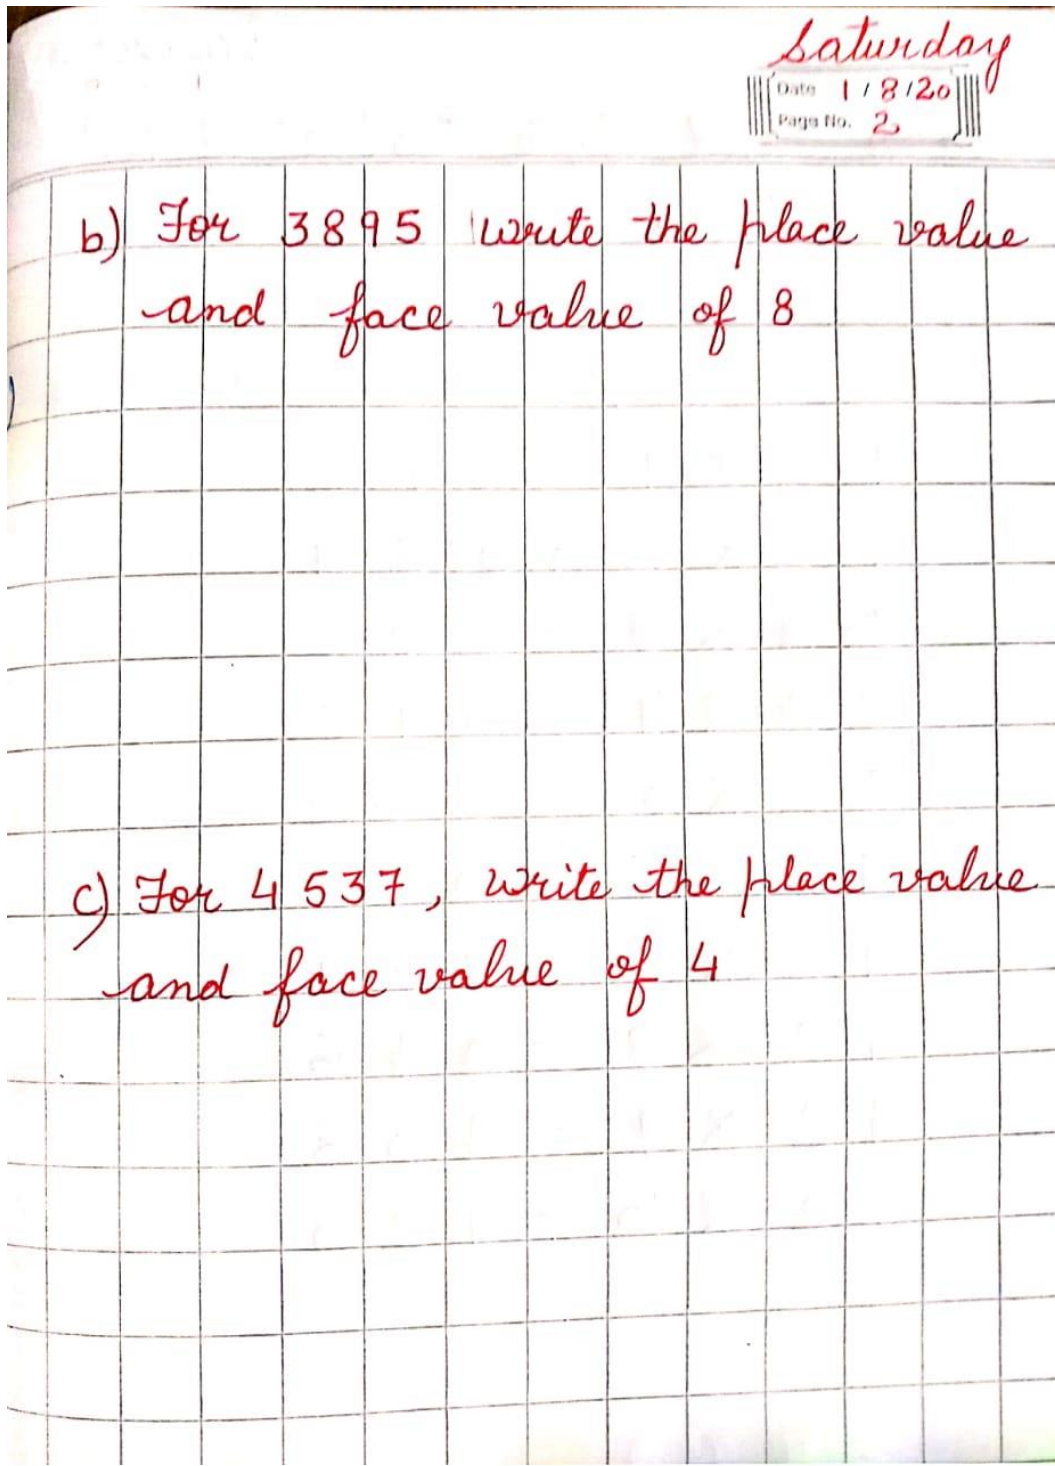 Saturday
Date 1/8/20
Page No. 2
b) For 3895 write the place value
and face value of 8
c) For 4537, write the place value
and face value of 4